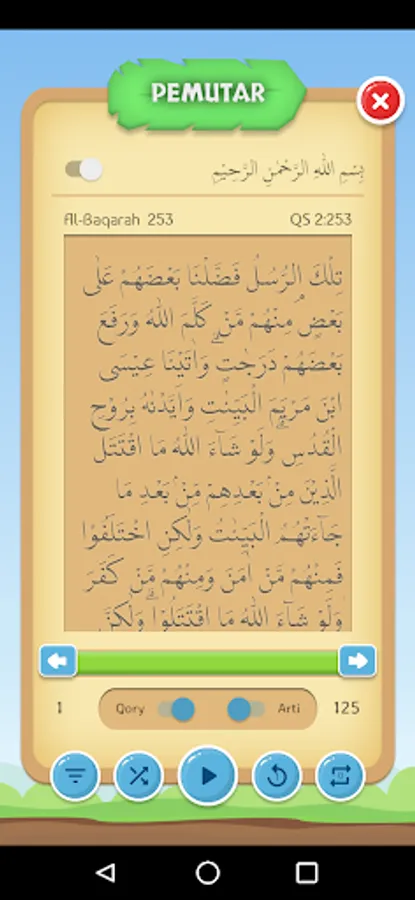 PEMUTAR
بِسْمِ اللهِ الرَّحْمٰنِ الرَّحِيْمِ
Al-Baqarah 253 QS 2:253
تِلْكَ الرُّسُلُ فَضَّلْنَا بَعْضَهُمْ عَلٰى
بَعْضٍۘ مِنْهُمْ مَّنْ كَلَّمَ اللّٰهُ وَرَفَعَ
بَعْضَهُمْ دَرَجٰتٍۗ وَاٰتَيْنَا عِيْسَى
ابْنَ مَرْيَمَ الْبَيِّنٰتِ وَاَيَّدْنٰهُ بِرُوْحِ
الْقُدُسِۗ وَلَوْ شَاۤءَ اللّٰهُ مَا اقْتَتَلَ
الَّذِيْنَ مِنْۢ بَعْدِهِمْ مِّنْۢ بَعْدِ مَا
جَاۤءَتْهُمُ الْبَيِّنٰتُ وَلٰكِنِ اخْتَلَفُوْا
فَمِنْهُمْ مَّنْ اٰمَنَ وَمِنْهُمْ مَّنْ كَفَرَ
وَلَوْ شَاۤءَ اللّٰهُ مَا اقْتَتَلُوْاۗ وَلٰكِنَّ
1 Qory Arti 125